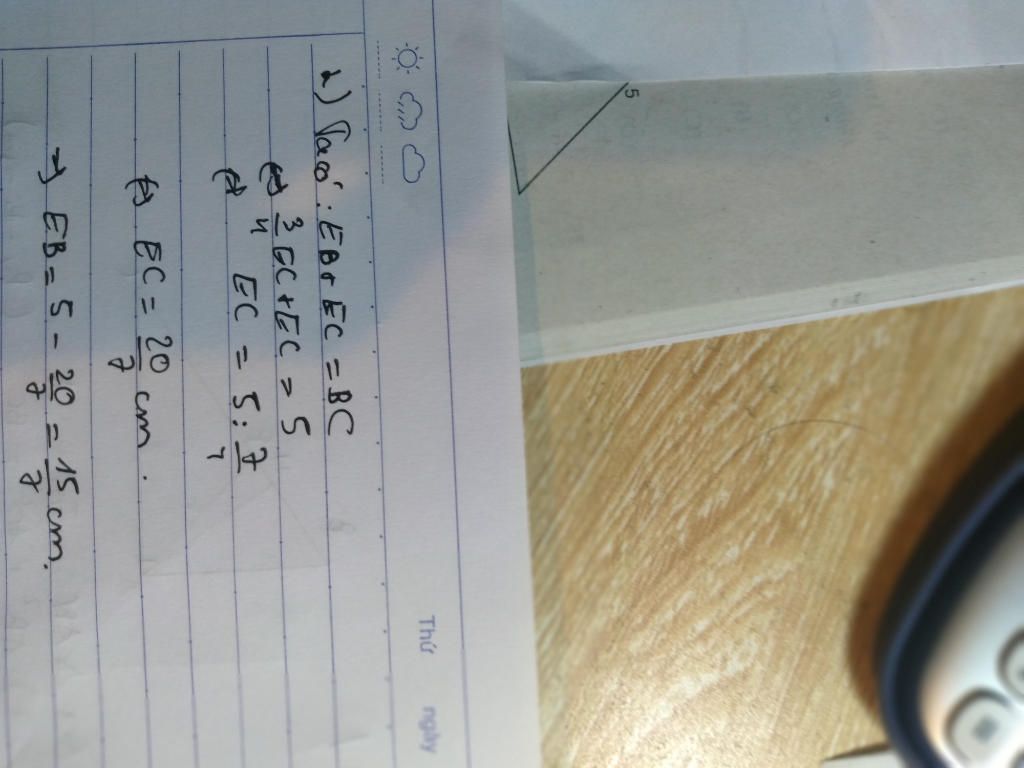 Thứ ngày
2) Ta có: EB + EC = BC
(=) 3/4 EC + EC = 5
(=) EC = 5 : 7/4
(=) EC = 20/7 cm.
→ EB = 5 - 20/7 = 15/7 cm.
5